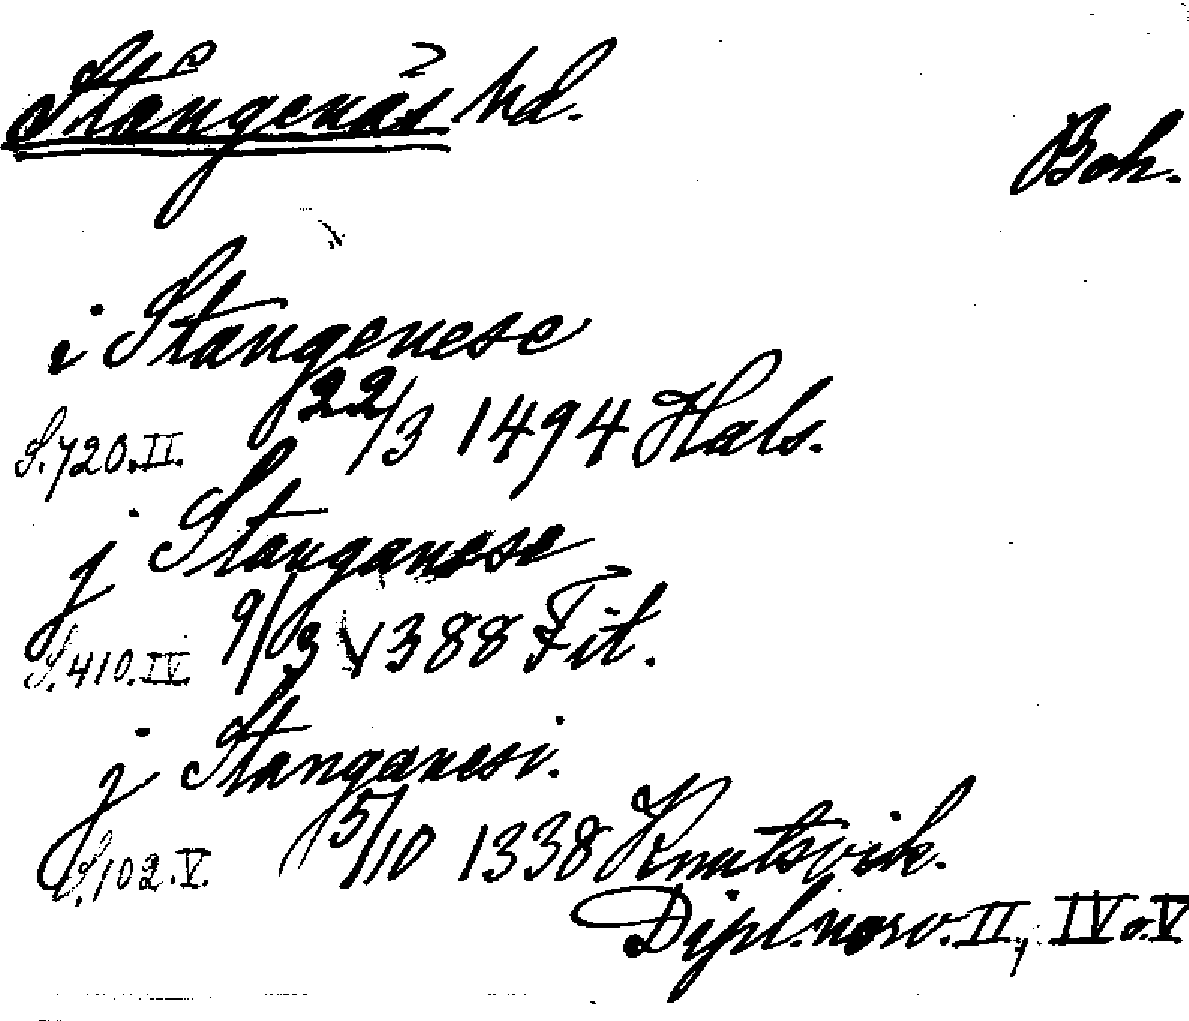 Stångenäs hd.
Boh.
i Stangenese
S. 720. II. 22/3 1494 Hals.
j Stanganese
S. 410. IV. 9/3 1388 Fit.
j Stanganesi.
S. 102. V. 15/10 1338 Knutsvik.
Dipl. norv. II, IV o. V